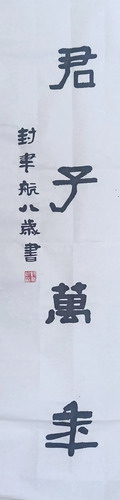 君子萬年
封聿航八歲書